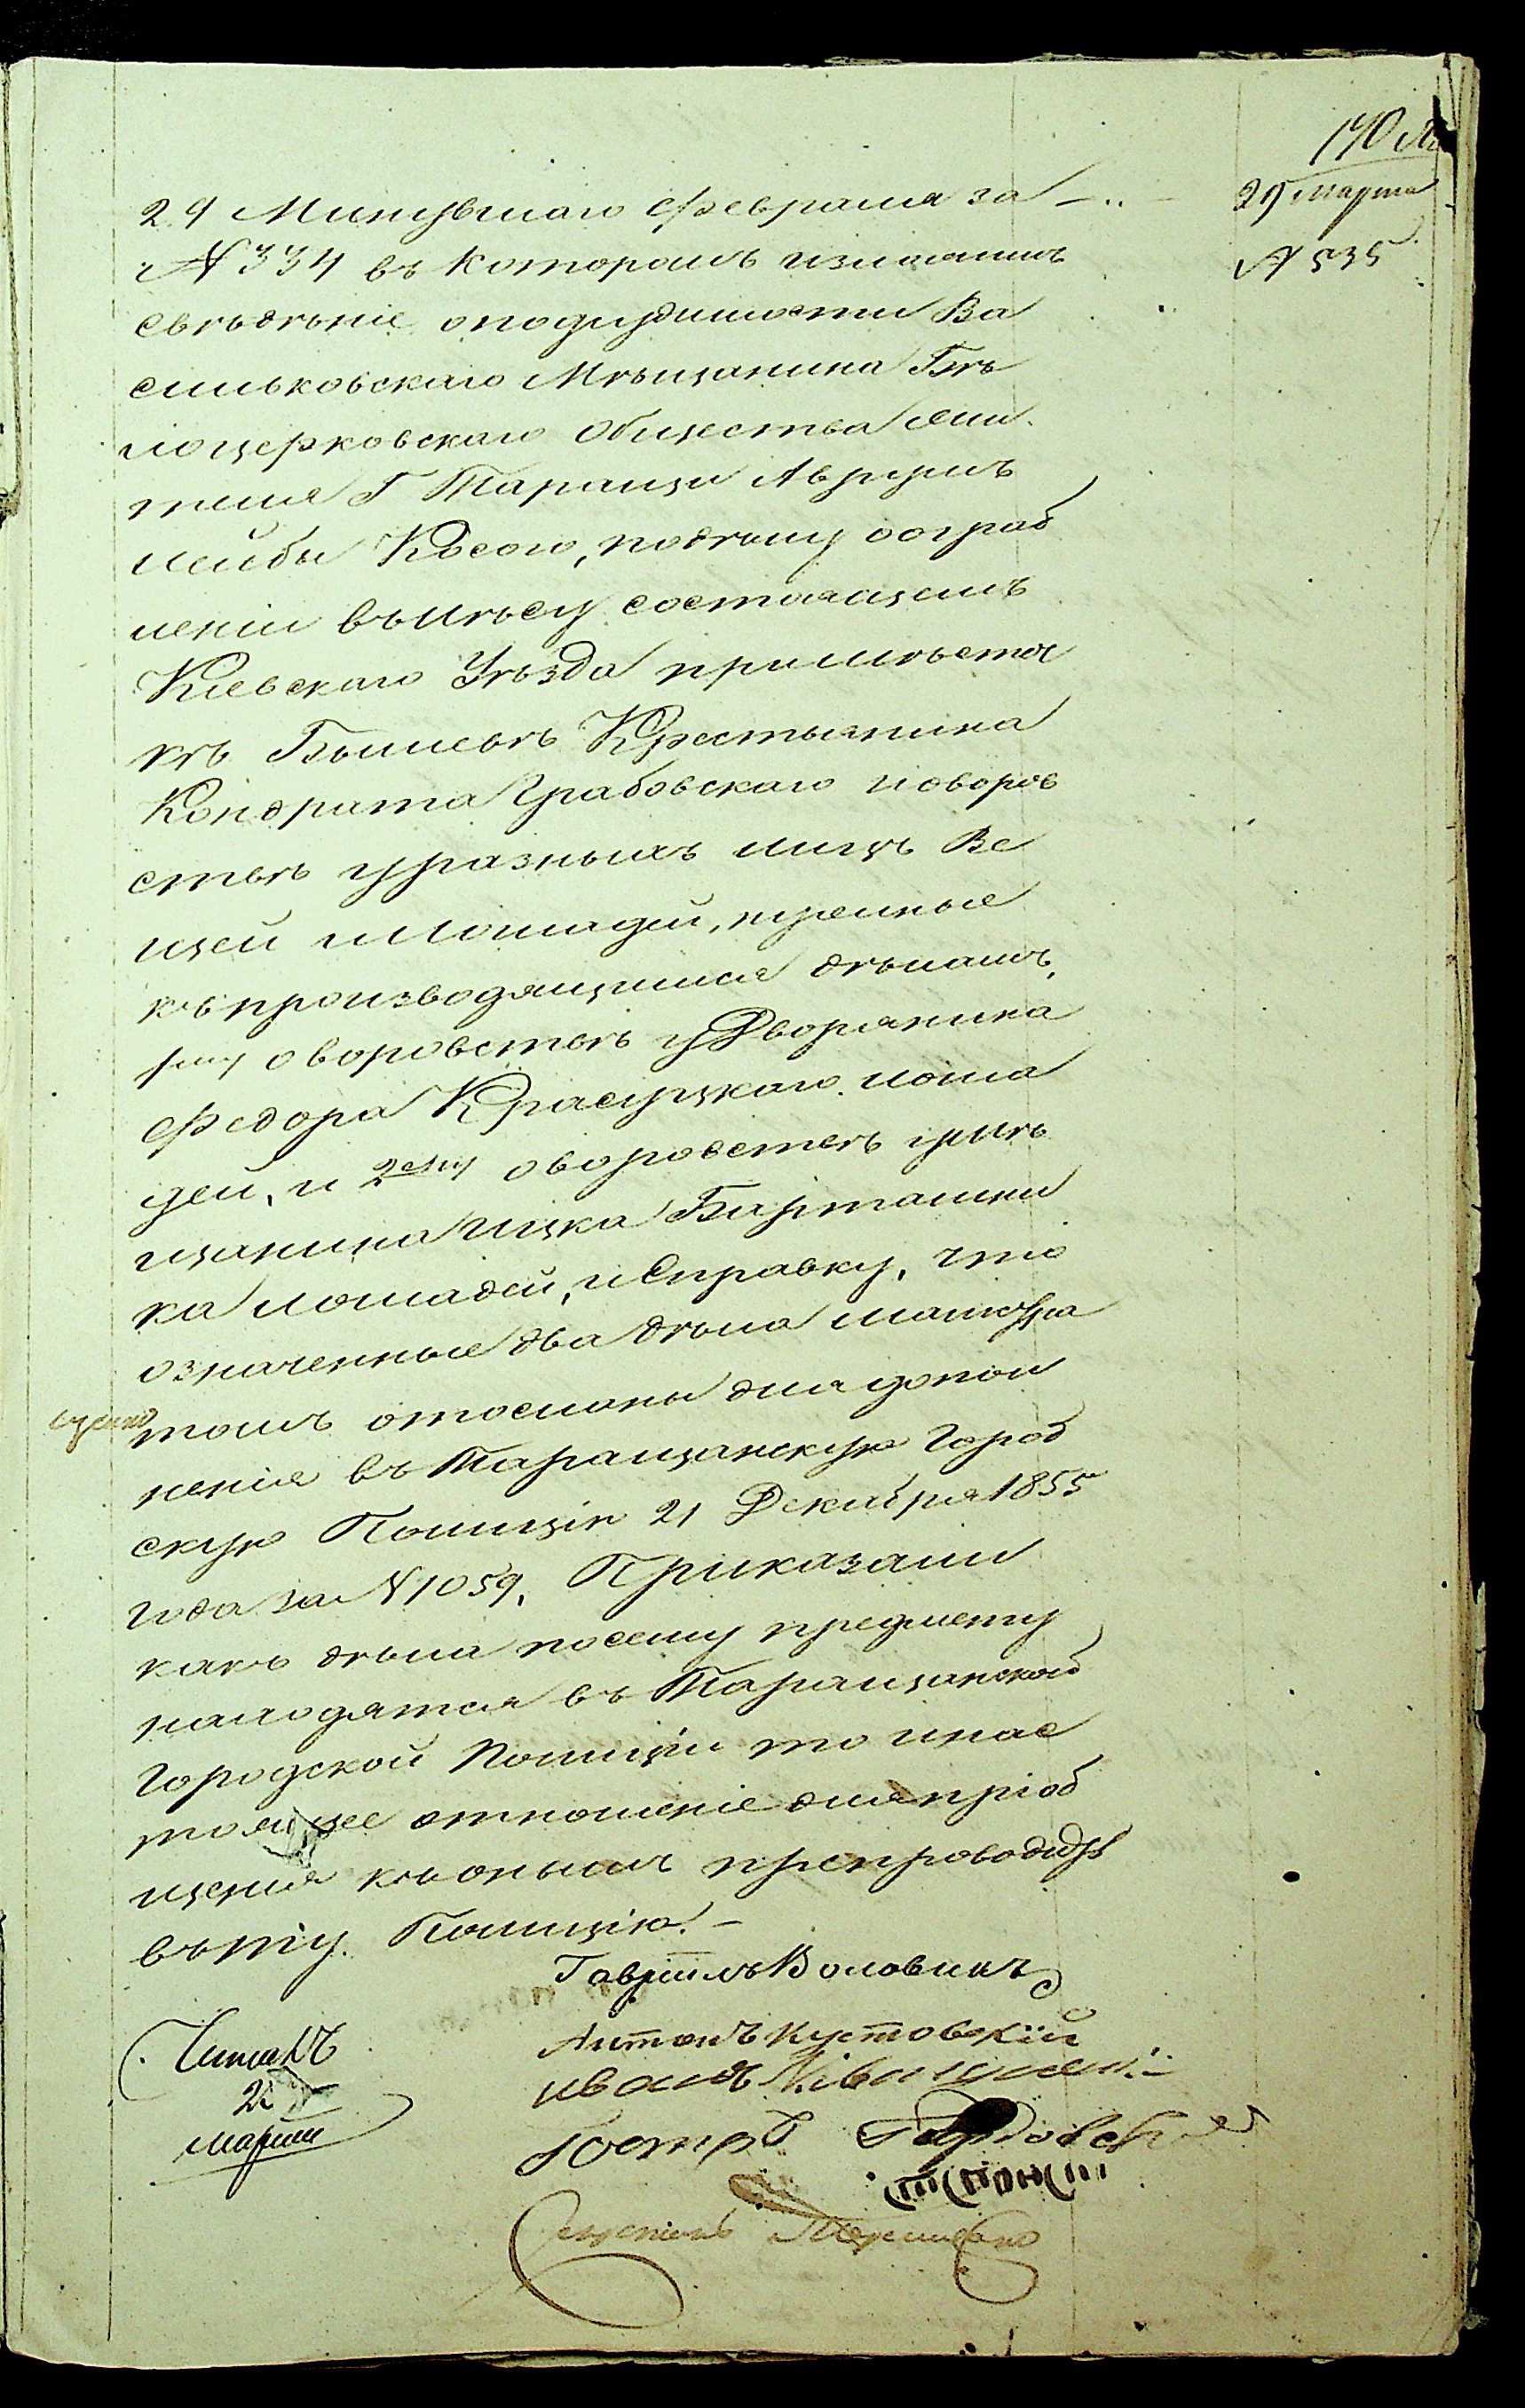 29 Марта
№ 535
24 Минувшаго Февраля за
№ 334 въ которомъ изложенно
свѣдѣніе оподсудимости Ва
сильковскаго Мѣщанина Бѣ
лоцерковскаго Общества жи
теля Г Таращи Аврумъ
Лейбы Косого,подѣлу оограб
леніи вълѣсу состоящемъ
Кіевскаго Уѣзда примѣстеч
кѣ Бышевѣ Крестьянина
Кондрата Грабовскаго иоворов
ствѣ уразныхъ лицъ Ве
щей иЛошадей, кремные
къпроизводящимся дѣламъ,
1му оворовствѣ уДворянина
Федора Красуцкаго лоша
дей, и 2му оворовствѣ умѣ
щанина Ицка Барташни
ка лошадей, иСправку, что
означенные два дѣла магистра
томъ отосланы для дополн
ненія въ Таращанскую Город
скую Полицію 21 Декабря 1855
года за № 1059, Приказали
какъ дѣла посему предмету
находятся въ Таращанской
Городской Полиціи то инас
тоящее отношеніе для пріоб
щенія къонымъ препроводить
въту Полицію. –
Гавріилъ Воловикъ
Антонъ Кустовскій
Иванъ
Читалъ
марта